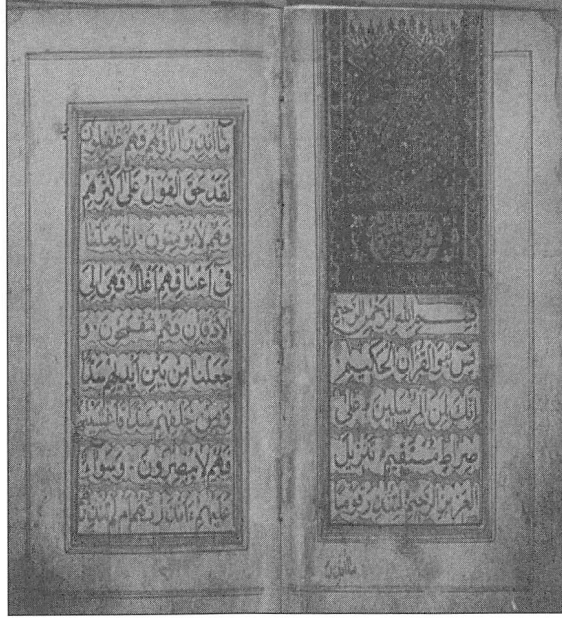 بِسْمِ اللهِ الرَّحْمٰنِ الرَّحِيمِ
يٰسٓ وَالْقُرْاٰنِ الْحَكِيمِ
اِنَّكَ لَمِنَ الْمُرْسَلِينَ عَلٰى
صِرَاطٍ مُسْتَقِيمٍ تَنْزِيلَ
الْعَزِيزِ الرَّحِيمِ لِتُنْذِرَ قَوْمًا
مَا اُنْذِرَ
مَا اُنْذِرَ اٰبَاؤُهُمْ فَهُمْ غٰفِلُونَ
لَقَدْ حَقَّ الْقَوْلُ عَلٰى اَكْثَرِهِمْ
فَهُمْ لَا يُؤْمِنُونَ اِنَّا جَعَلْنَا
فِى اَعْنَاقِهِمْ اَغْلَالًا فَهِىَ اِلَى
الْاَذْقَانِ فَهُمْ مُقْمَحُونَ وَ
جَعَلْنَا مِنْ بَيْنِ اَيْدِيهِمْ سَدًّا
وَمِنْ خَلْفِهِمْ سَدًّا فَاَغْشَيْنٰهُمْ
فَهُمْ لَا يُبْصِرُونَ وَسَوَاءٌ
عَلَيْهِمْ ءَاَنْذَرْتَهُمْ اَمْ لَمْ تُنْذِرْ